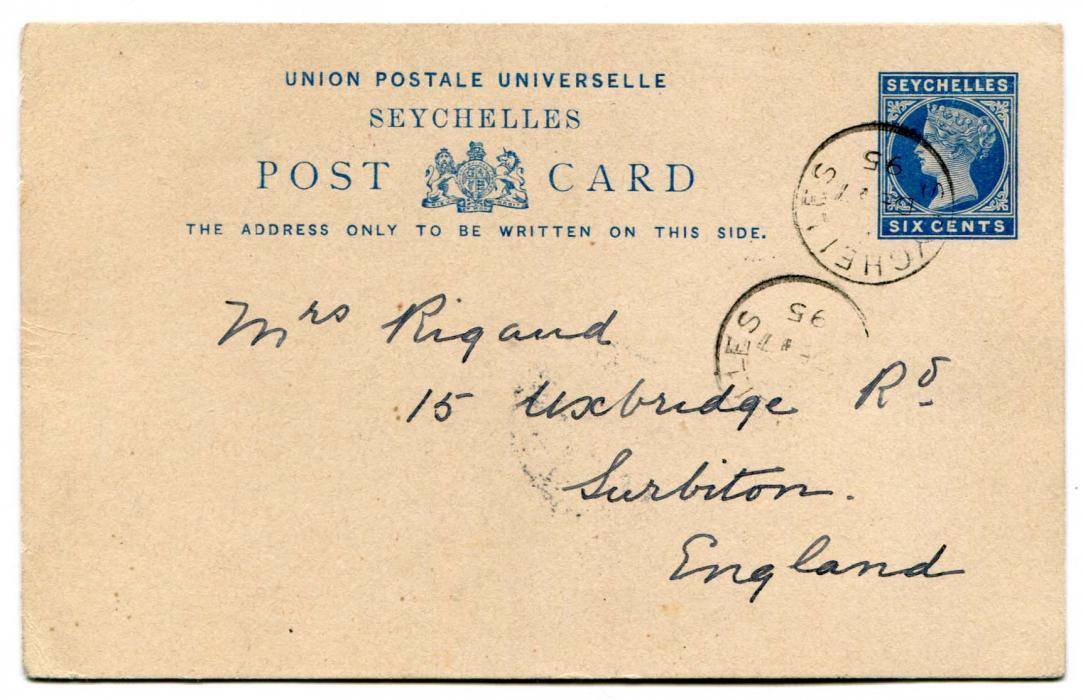 UNION POSTALE UNIVERSELLE
SEYCHELLES
POST CARD
THE ADDRESS ONLY TO BE WRITTEN ON THIS SIDE.
SEYCHELLES
SIX CENTS
SEYCHELLES
95
LES
95
Mrs Rigaud
15 Uxbridge Rd
Surbiton.
England